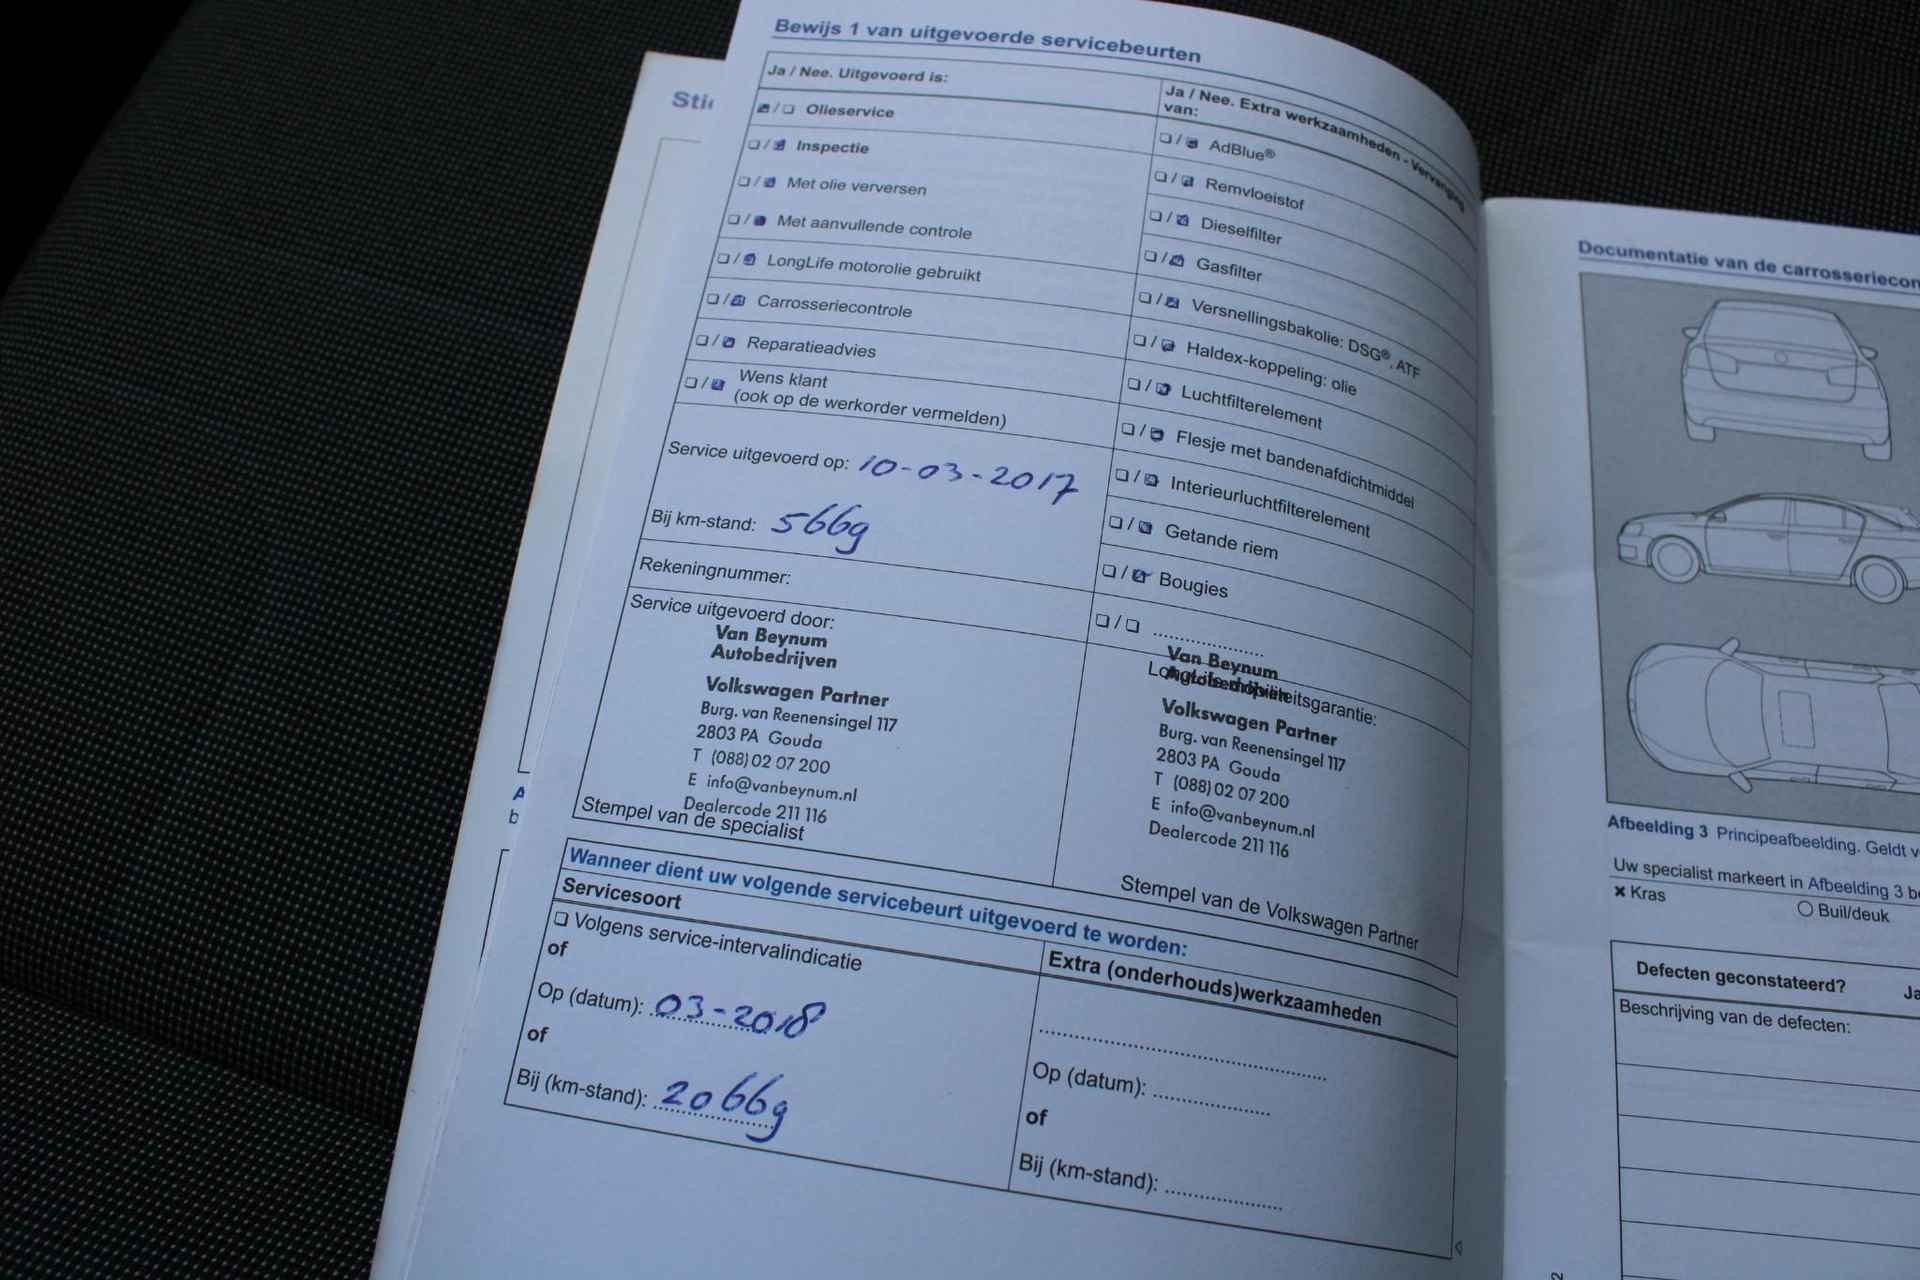 Bewijs 1 van uitgevoerde servicebeurten
Ja / Nee. Uitgevoerd is:
❏ / ❏ Olieservice
❏ / ❏ Inspectie
❏ / ❏ Met olie verversen
❏ / ❏ Met aanvullende controle
❏ / ❏ LongLife motorolie gebruikt
❏ / ❏ Carrosseriecontrole
❏ / ❏ Reparatieadvies
❏ / ❏ Wens klant
(ook op de werkorder vermelden)
Service uitgevoerd op: 10-03-2017
Bij km-stand: 5669
Rekeningnummer:
Service uitgevoerd door:
Van Beynum
Autobedrijven
Volkswagen Partner
Burg. van Reenensingel 117
2803 PA Gouda
T (088) 02 07 200
E info@vanbeynum.nl
Dealercode 211 116
Stempel van de specialist
Ja / Nee. Extra werkzaamheden - Vervanging
van:
❏ / ❏ AdBlue®
❏ / ❏ Remvloeistof
❏ / ❏ Dieselfilter
❏ / ❏ Gasfilter
❏ / ❏ Versnellingsbakolie: DSG®, ATF
❏ / ❏ Haldex-koppeling: olie
❏ / ❏ Luchtfilterelement
❏ / ❏ Flesje met bandenafdichtmiddel
❏ / ❏ Interieurluchtfilterelement
❏ / ❏ Getande riem
❏ / ❏ Bougies
❏ / ❏ ....................
Van Beynum
Autobedrijven
Volkswagen Partner
Burg. van Reenensingel 117
2803 PA Gouda
T (088) 02 07 200
E info@vanbeynum.nl
Dealercode 211 116
Stempel van de Volkswagen Partner
Wanneer dient uw volgende servicebeurt uitgevoerd te worden:
Servicesoort
❏ Volgens service-intervalindicatie
of
Op (datum): 03-2018
of
Bij (km-stand): 20669
Extra (onderhouds)werkzaamheden
Op (datum): ....................
of
Bij (km-stand): ....................
Documentatie van de carrosseriecon
Afbeelding 3 Principeafbeelding. Geldt v
Uw specialist markeert in Afbeelding 3 be
✖ Kras
○ Buil/deuk
Defecten geconstateerd? Ja
Beschrijving van de defecten: